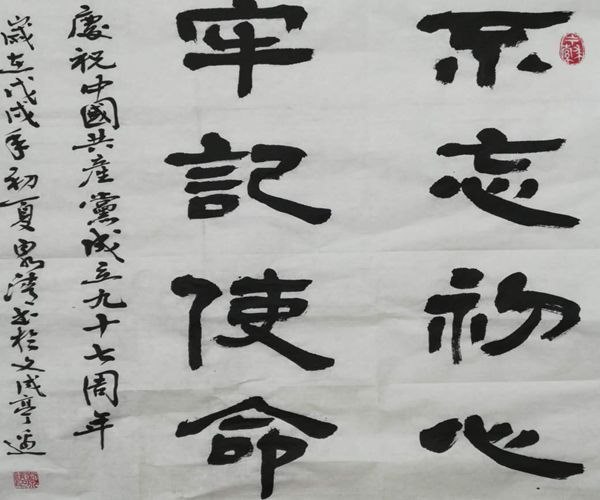 不忘初心
牢記使命
慶祝中國共產黨成立九十七周年
歲在戊戌年初夏泉清書於文成亭邊